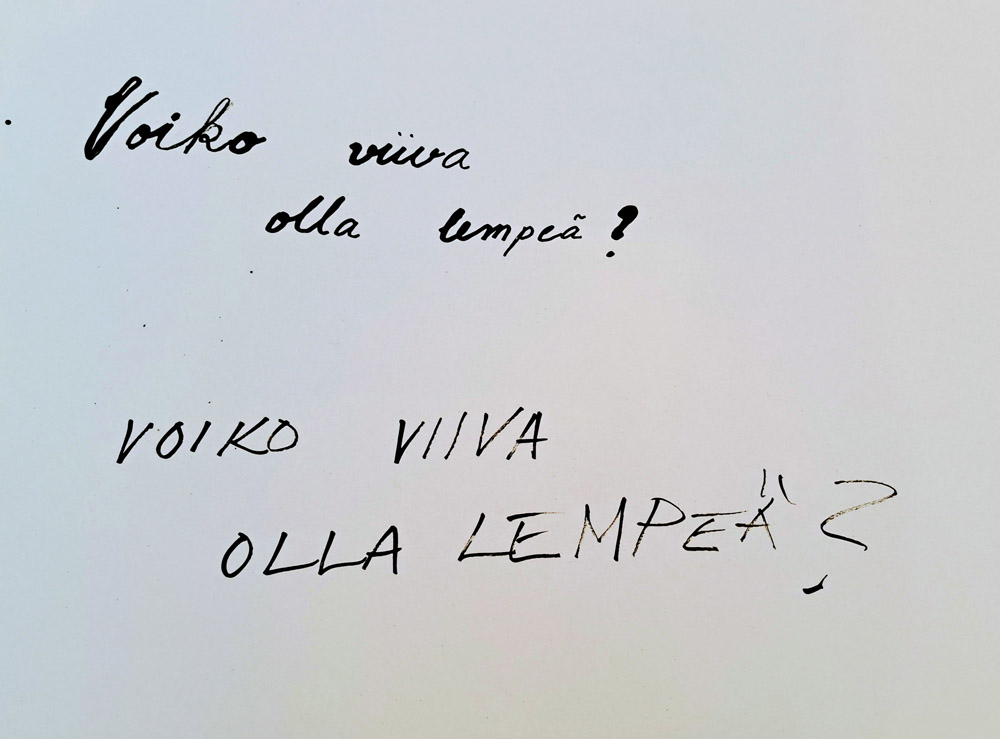 Voiko viiva
olla lempeä?
VOIKO VIIVA
OLLA LEMPEÄ?